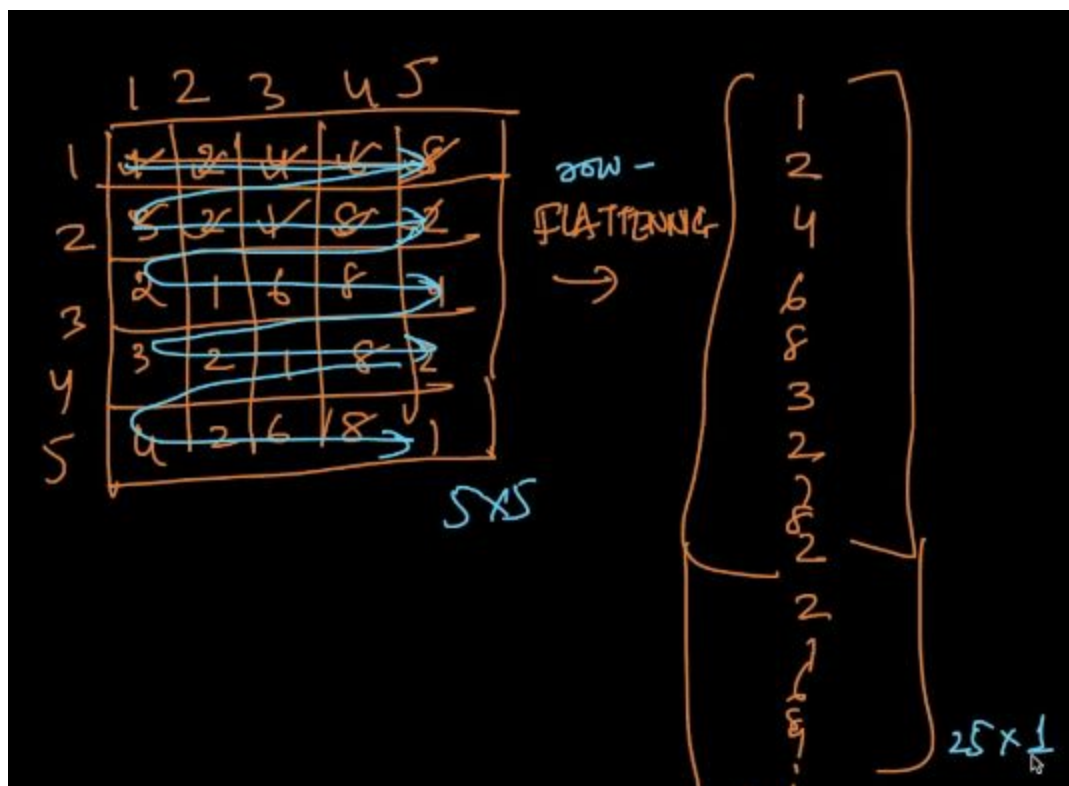 1 2 3 4 5
1 1 2 4 6 8
2 3 2 1 8 2
3 2 1 6 8 1
4 3 2 1 8 2
5 4 2 6 8 1
5x5
row -
FLATTENNG
→
1
2
4
6
8
3
2
2
8
2
2
1
6
8
1
25 x 1